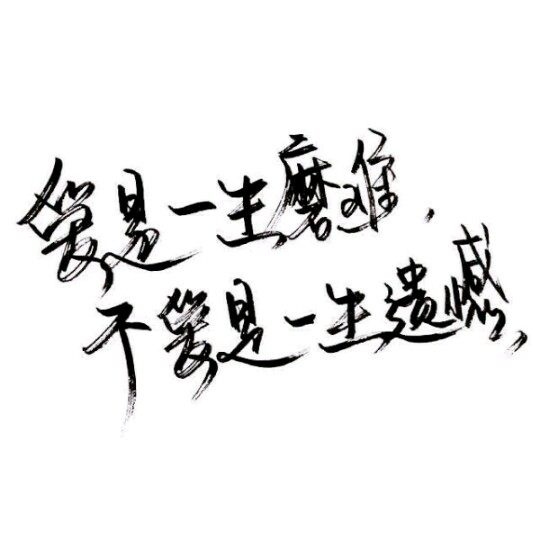 爱是一生磨难，
不爱是一生遗憾，